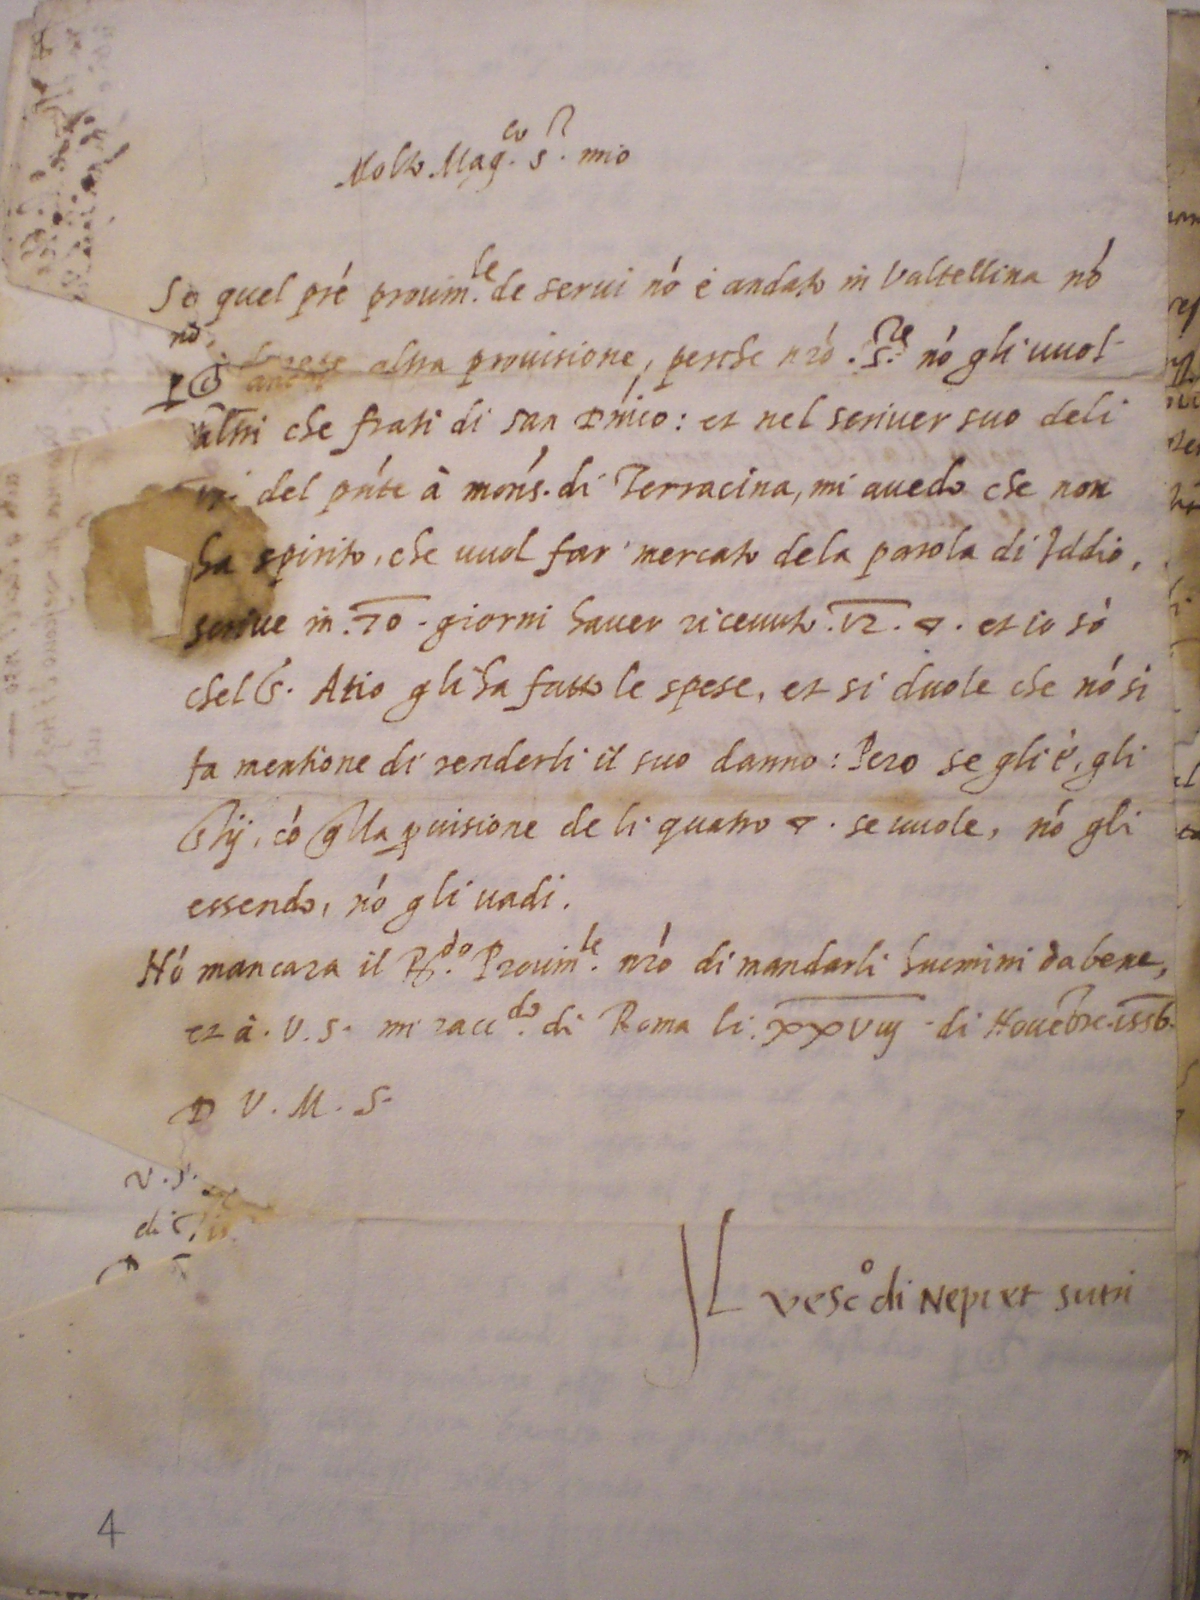 Molto Mag.co S.r mio
Se quel pré provin.le de servi nó é andato in Valtellina nó
nó
altra provisione, perche nró .S.re nó gli vuol
altri che frati di san Dnico: et nel scriver suo deli
del pnte à mons. di Terracina, mi avedo che non
ha spirito, che vuol far mercato dela parola di Iddio,
scrive in .70. giorni haver ricevuto et io só
chel S. Atio gli ha fatto le spese, et si duole che nó si
fa mentione di renderli il suo danno: Pero se gli è, gli
có qlla pvisione de li quattro se vuole, nó gli
essendo, nó gli vadi.
Nó mancara il R.do Provin.le nró di mandarli huomini da bene,
et à. V. S. mi racc.do di Roma li. XXViij di Novébre. 1556.
D V. M. S.
V. S.
di
Il Vesc.o di Nepi et Sutri
4